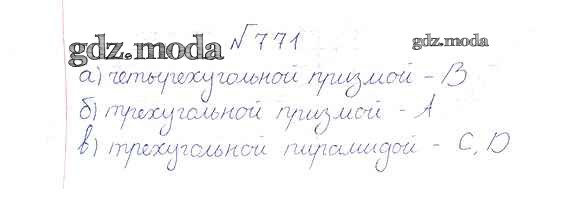 №771
gdz.moda gdz.moda
а) четырехугольной призмой - В
б) трехугольной призмой - А
в) трехугольной пирамидой - С, D